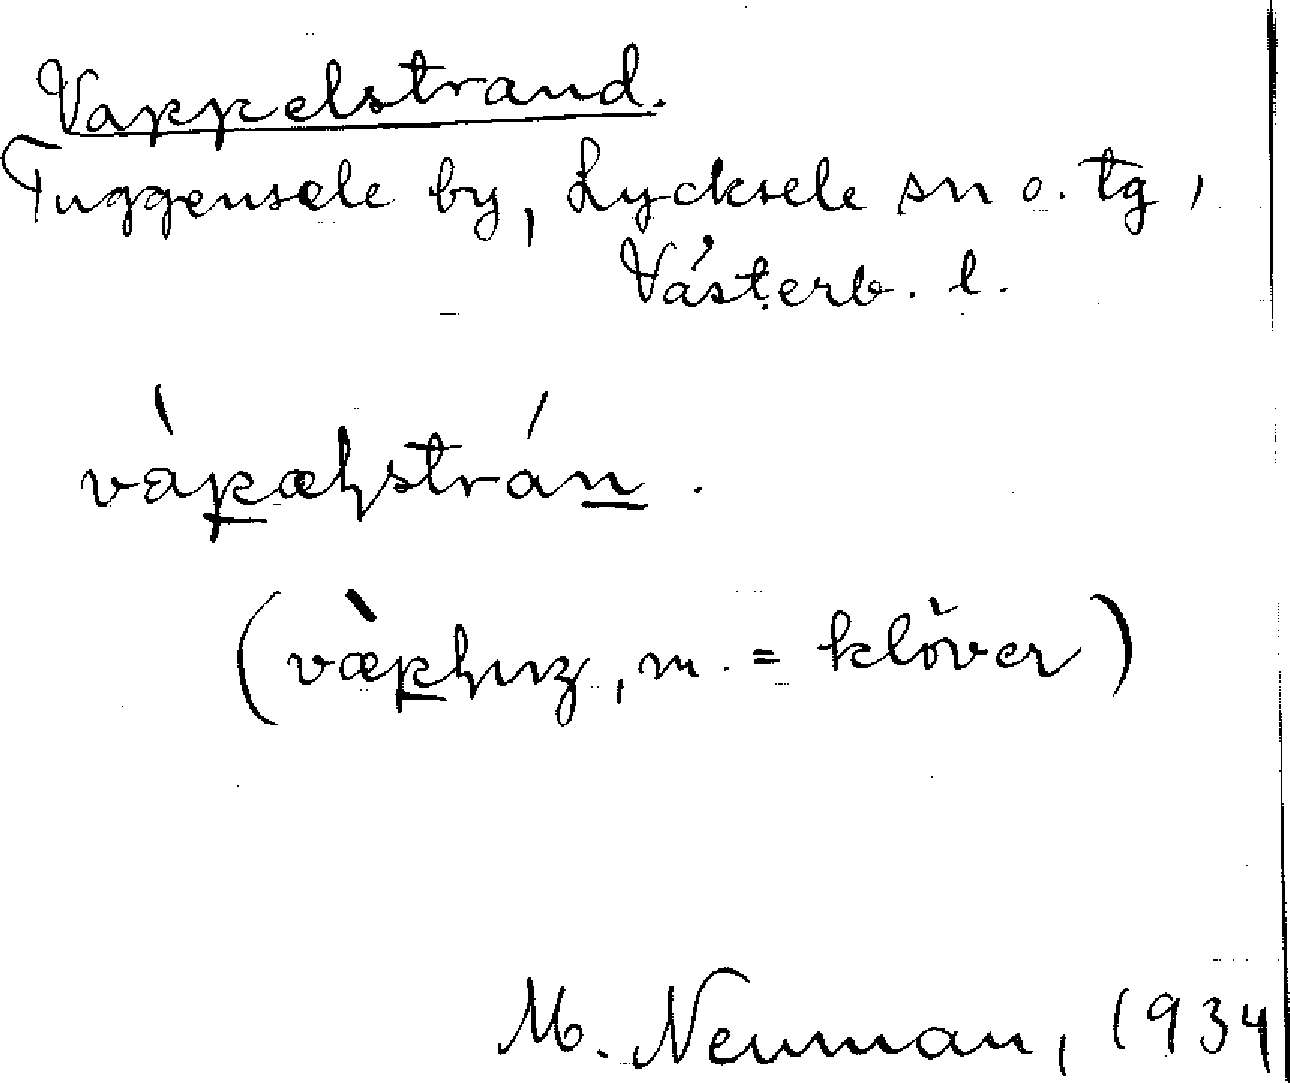 Vappelstrand.
Tuggensele by, Lycksele sn o. tg,
Västerb. l.
vàpælstrán.
(væ̀plıŋ, m. = klöver)
M. Neuman, 1934